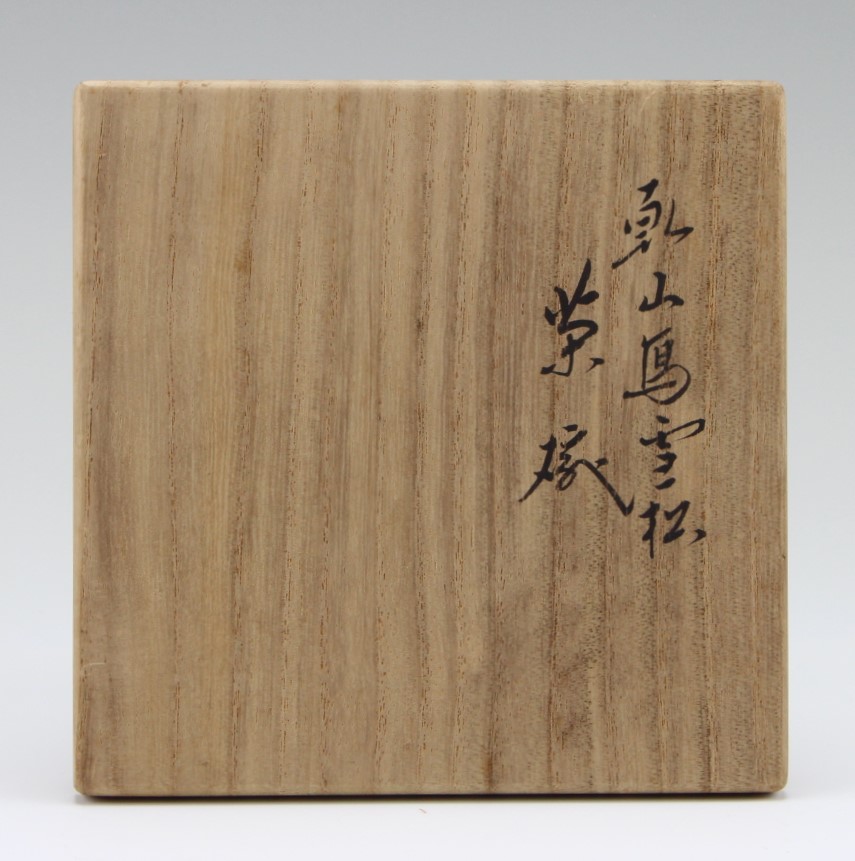 乾山写雪松
茶碗